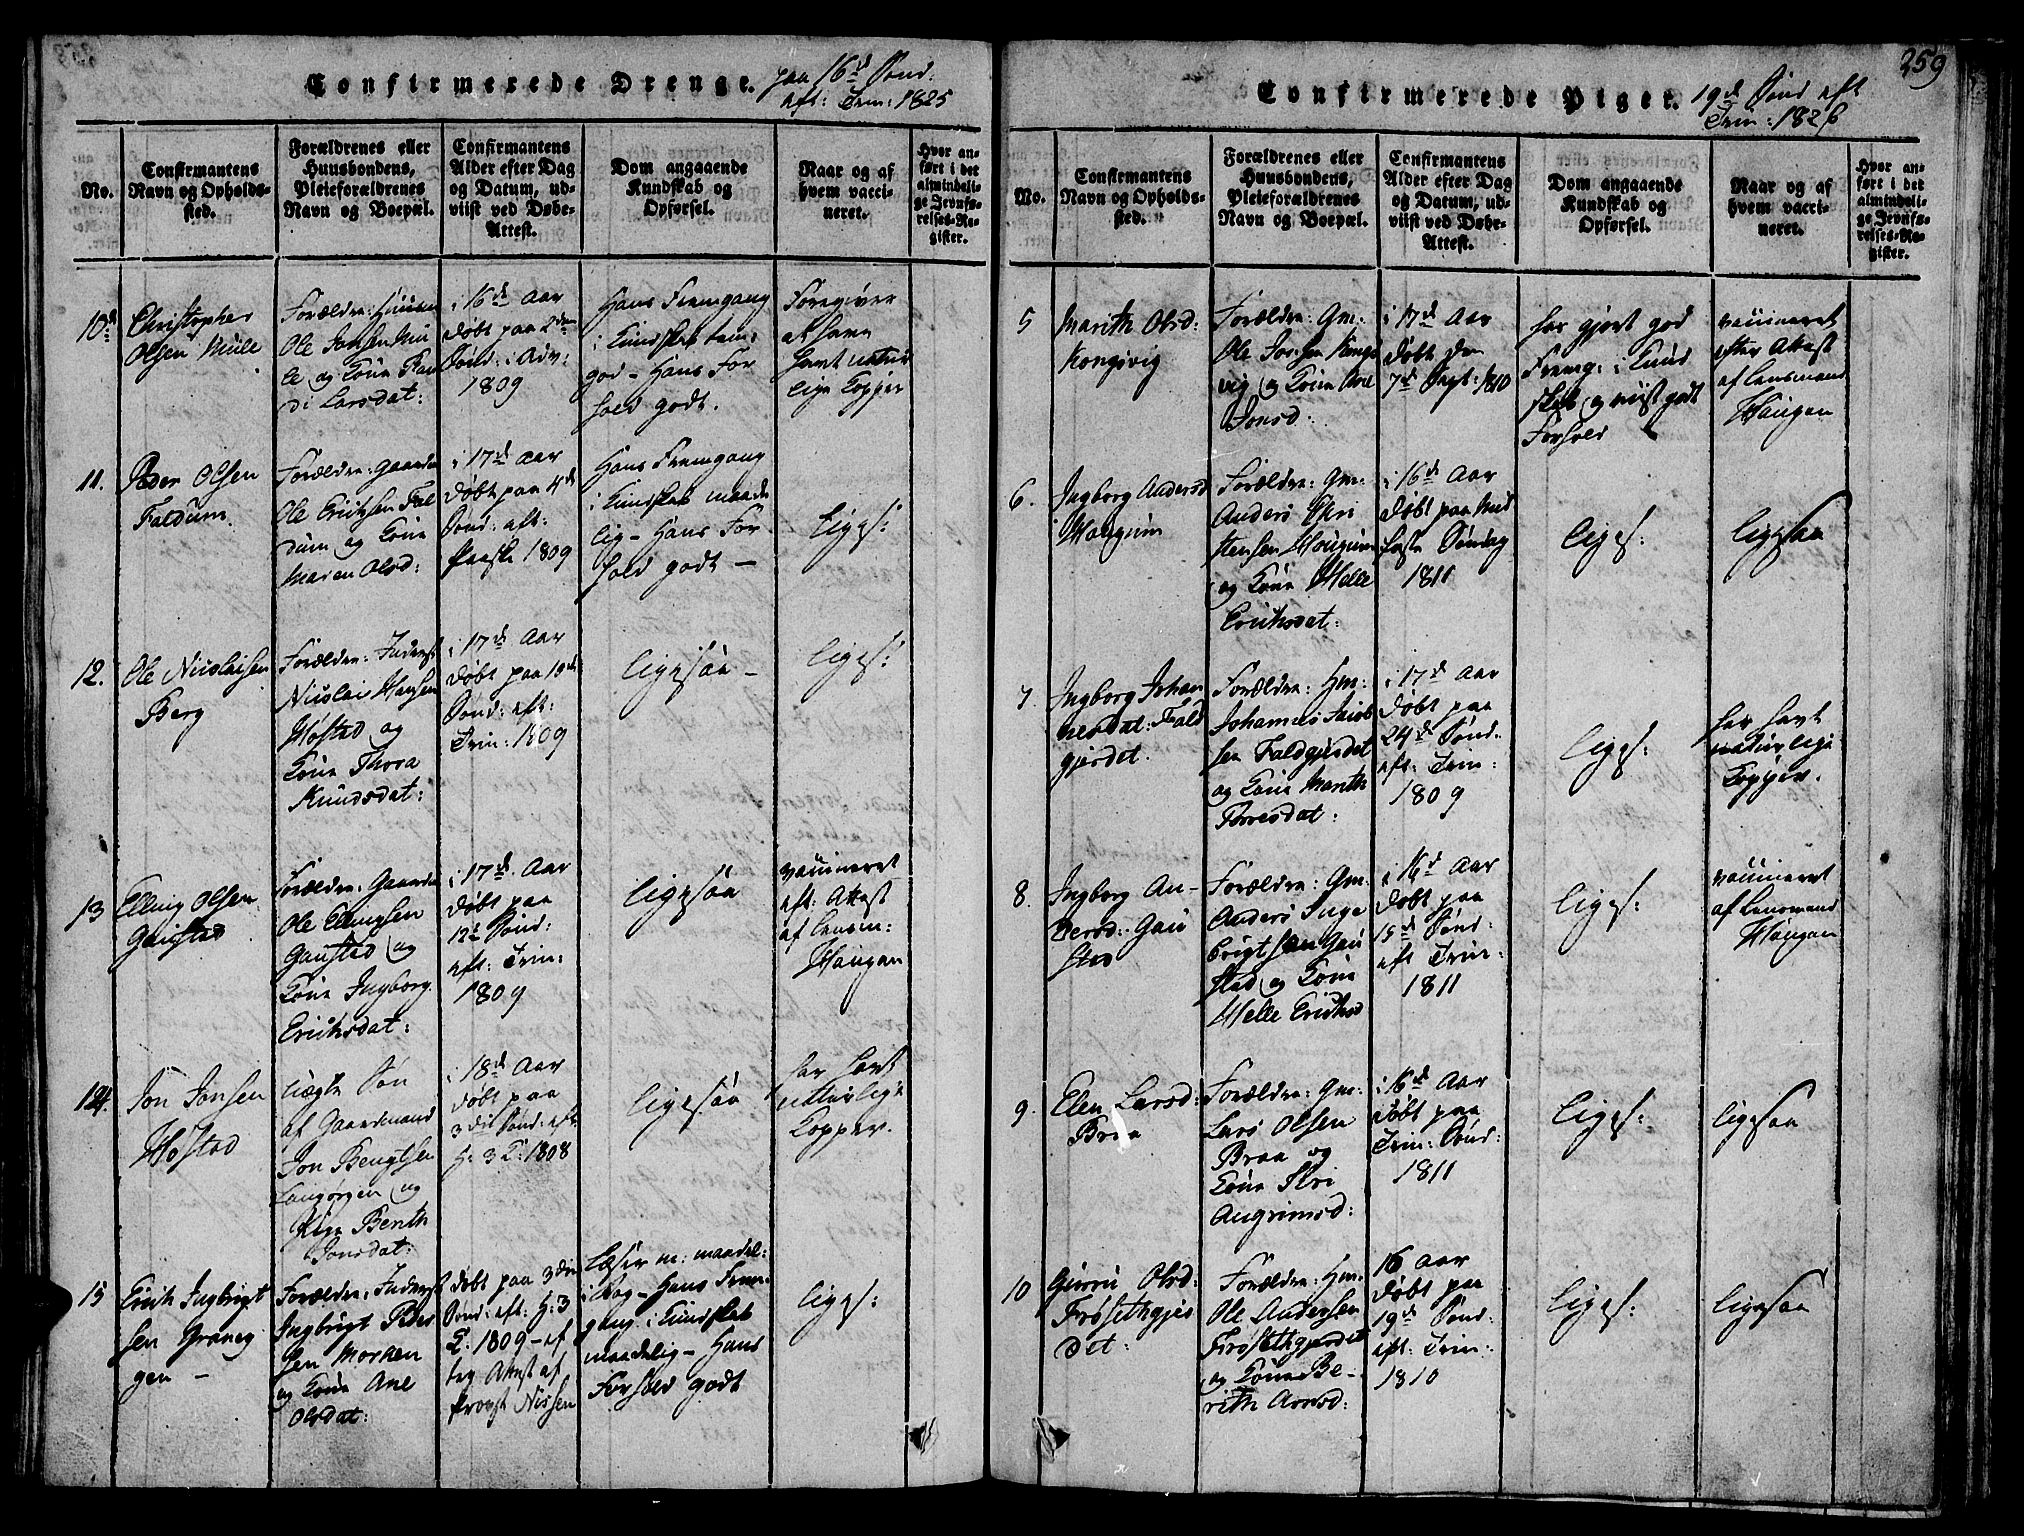 Confirmerede Drenge. paa 16de Sønd:
aft: Trin: 1825
No.
Confirmantens
Navn og Opholds-
sted.
Forældrenes eller
Huusbondens,
Pleieforældrenes
Navn og Boepæl.
Confirmantens
Alder efter Dag
og Datum, ud-
viist ved Døbe-
Attest.
Dom angaaende
Kundskab og
Opførsel.
Naar og af
hvem vacci-
neret.
Hvor an-
ført i det
almindeli-
ge Jevnfø-
relses-Re-
gister.
10de
Christopher
Olsen Mule
Forældre: Huusm
Ole Jonsen Mu
le og Kone Ran
di Larsdat:
i 16de Aar
døbt paa 2den
Sønd: i Adv:
1809
Hans Fremgang
i Kundskab tem:
god - Hans For
hold godt.
Foregiver
at have
havt natur
lige Kopper
11.
Peder Olsen
Faldum.
Forældre: Gaardm
Ole Erichsen Fal
dum og Kone
Maren Olsd:
i 17de Aar
døbt paa 4de
Sønd: aft:
Paaske 1809
Hans Fremgang
i Kundskab maade
lig - Hans For
hold godt -
Liges:
12.
Ole Nicolaisen
Berg
Forældre: Inderst
Nicolai Hansen
Høstad og
Kone Thora
Knudsdat:
i 17de Aar
døbt paa 10de
Sønd: aft:
Trin: 1809
Ligesaa -
Liges:
13
Elling Olsen
Gaustad
Forældre: Gaardm
Ole Ellingsen
Gaustad og
Kone Ingborg
Erichsdat:
i 17de Aar
døbt paa
12te Sønd:
aft: Trin:
1809
Ligesaa
vaccineret
eft: Attest
af Lensm:
Haugan
14.
Jon Jonsen
Høstad
uægte Søn
af Gaardmand
Jon Bengtsen
Langørgen og
Pige Berith
Jonsdat:
i 18de Aar
døbt paa
3die Sønd: aft
H: 3 K: 1808
Ligesaa
har havt
naturlige
Kopper.
15
Erich Ingbrigt
sen Graneg
gen -
Forældre: Inderst
Ingbrigt Peder
sen Morken
og Kone Ane
Olsdat:
døbt paa 3die
Sønd: aft: H: 3
K: 1809 - ef
ter Attest af
Provst Nissen
Læser m: maadel:
i Bog - Hans Frem-
gang i Kundskab
maadelig - Hans
Forhold godt
Liges:
259
Confirmerede Piger. 19de Sønd aft
Trin: 1826
No.
Confirmantens
Navn og Opholds-
sted.
Forældrenes eller
Huusbondens,
Pleieforældrenes
Navn og Boepæl.
Confirmantens
Alder efter Dag
og Datum, ud-
viist ved Døbe-
Attest.
Dom angaaende
Kundskab og
Opførsel.
Naar og af
hvem vacci-
neret.
Hvor an-
ført i det
almindeli-
ge Jevnfø-
relses-Re-
gister.
5
Marith Olsd:
Kongsvig
Forældre: Gm:
Ole Jonsen Kongs
vig og Kone Ane
Jonsd:
i 17de Aar
døbt den
7de Sept: 1810
har gjort god
Fremg: i Kund
skab og viist godt
Forhold
vaccineret
efter Attest
af Lensmand
Haugan
6.
Ingborg Andersd
Haugum
Forældre: Gm:
Anders Chri
stensen Haugum
og Kone Helle
Erichsdat:
i 16de Aar
døbt paa Mid
faste Søndag
1811
Liges:
Ligesaa
7
Ingborg Johan
nesdat: Fald
gjerdet.
Forældre: Hm:
Johannes Jacob
sen Faldgjerdet
og Kone Marith
Torresdat:
i 17de Aar
døbt paa
24de Sønd:
aft: Trin:
1809
Liges:
har havt
naturlige
Kopper.
8.
Ingborg An-
dersd: Gau
stad
Forældre: Gm:
Anders Inge
brigtsen Gau
stad og Kone
Helle Erichsd
i 16de Aar
døbt paa
15de Sønd:
aft Trin:
1811
Liges:
vaccineret
af Lensmand
Haugan
9.
Elen Larsd:
Braa
Forældre: Gm:
Lars Olsen
Braa og
Kone Siri
Angrimsd:
i 16de Aar
døbt paa
Trin: Sønd:
1811
Liges:
Ligesaa
10
Gurru Olsd:
Frøsethgjer
det:
Forældre: Hm:
Ole Andersen
Frøsethgjerdet
og Kone Be-
rith Arnsd:
16 Aar
døbt paa
19de Sønd:
aft: Trin:
1810
Liges:
Ligesaa